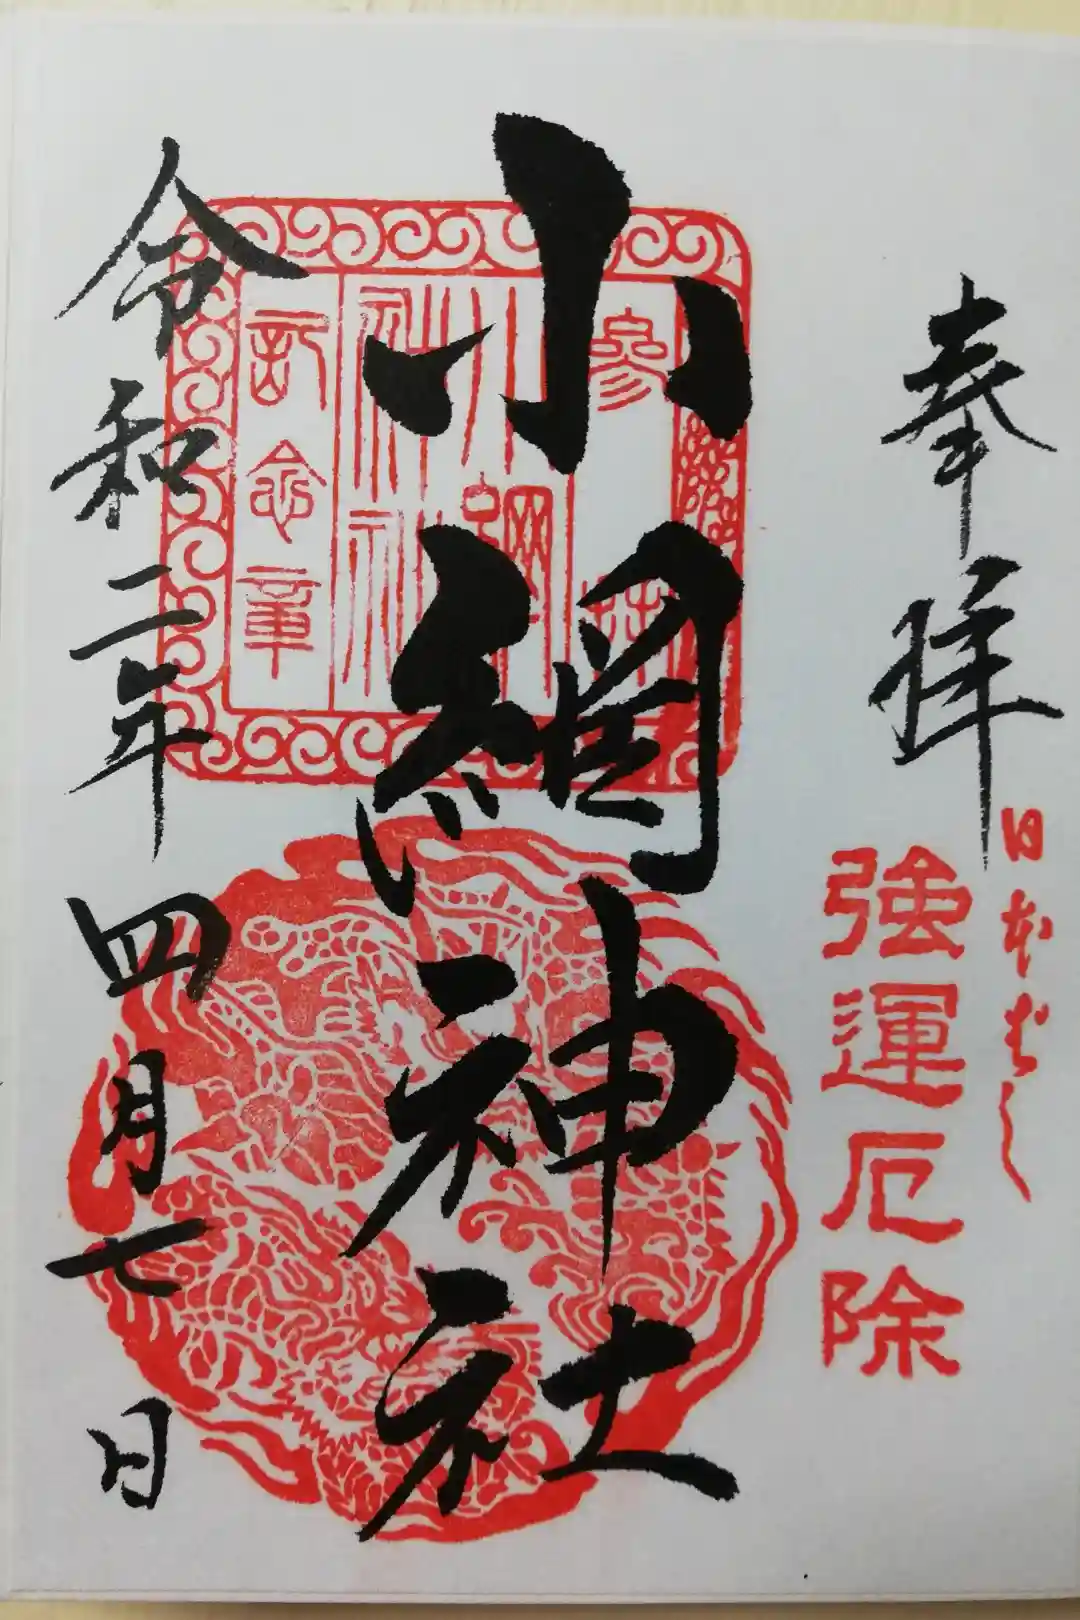 奉拝
日本ばし
強運厄除
小網神社
參拜
小網神社
記念章
令和二年四月七日